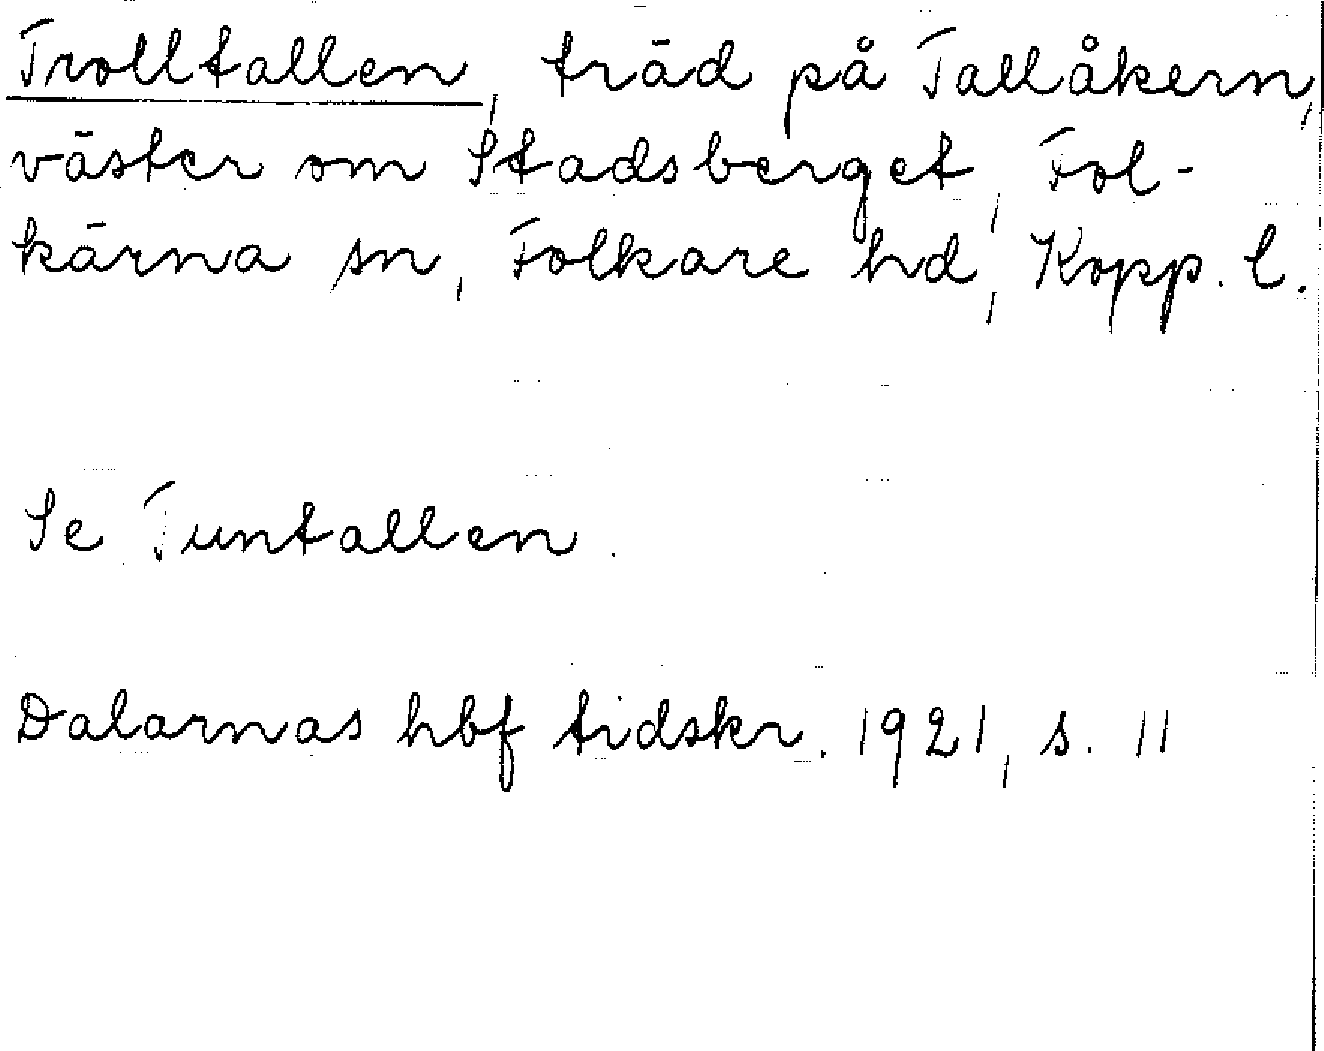 Trolltallen, träd på Tallåkern,
väster om Stadsberget, Fol-
kärna sn, Folkare hd, Kopp. l.
Se Tuntallen.
Dalarnas hbf tidskr. 1921, s. 11